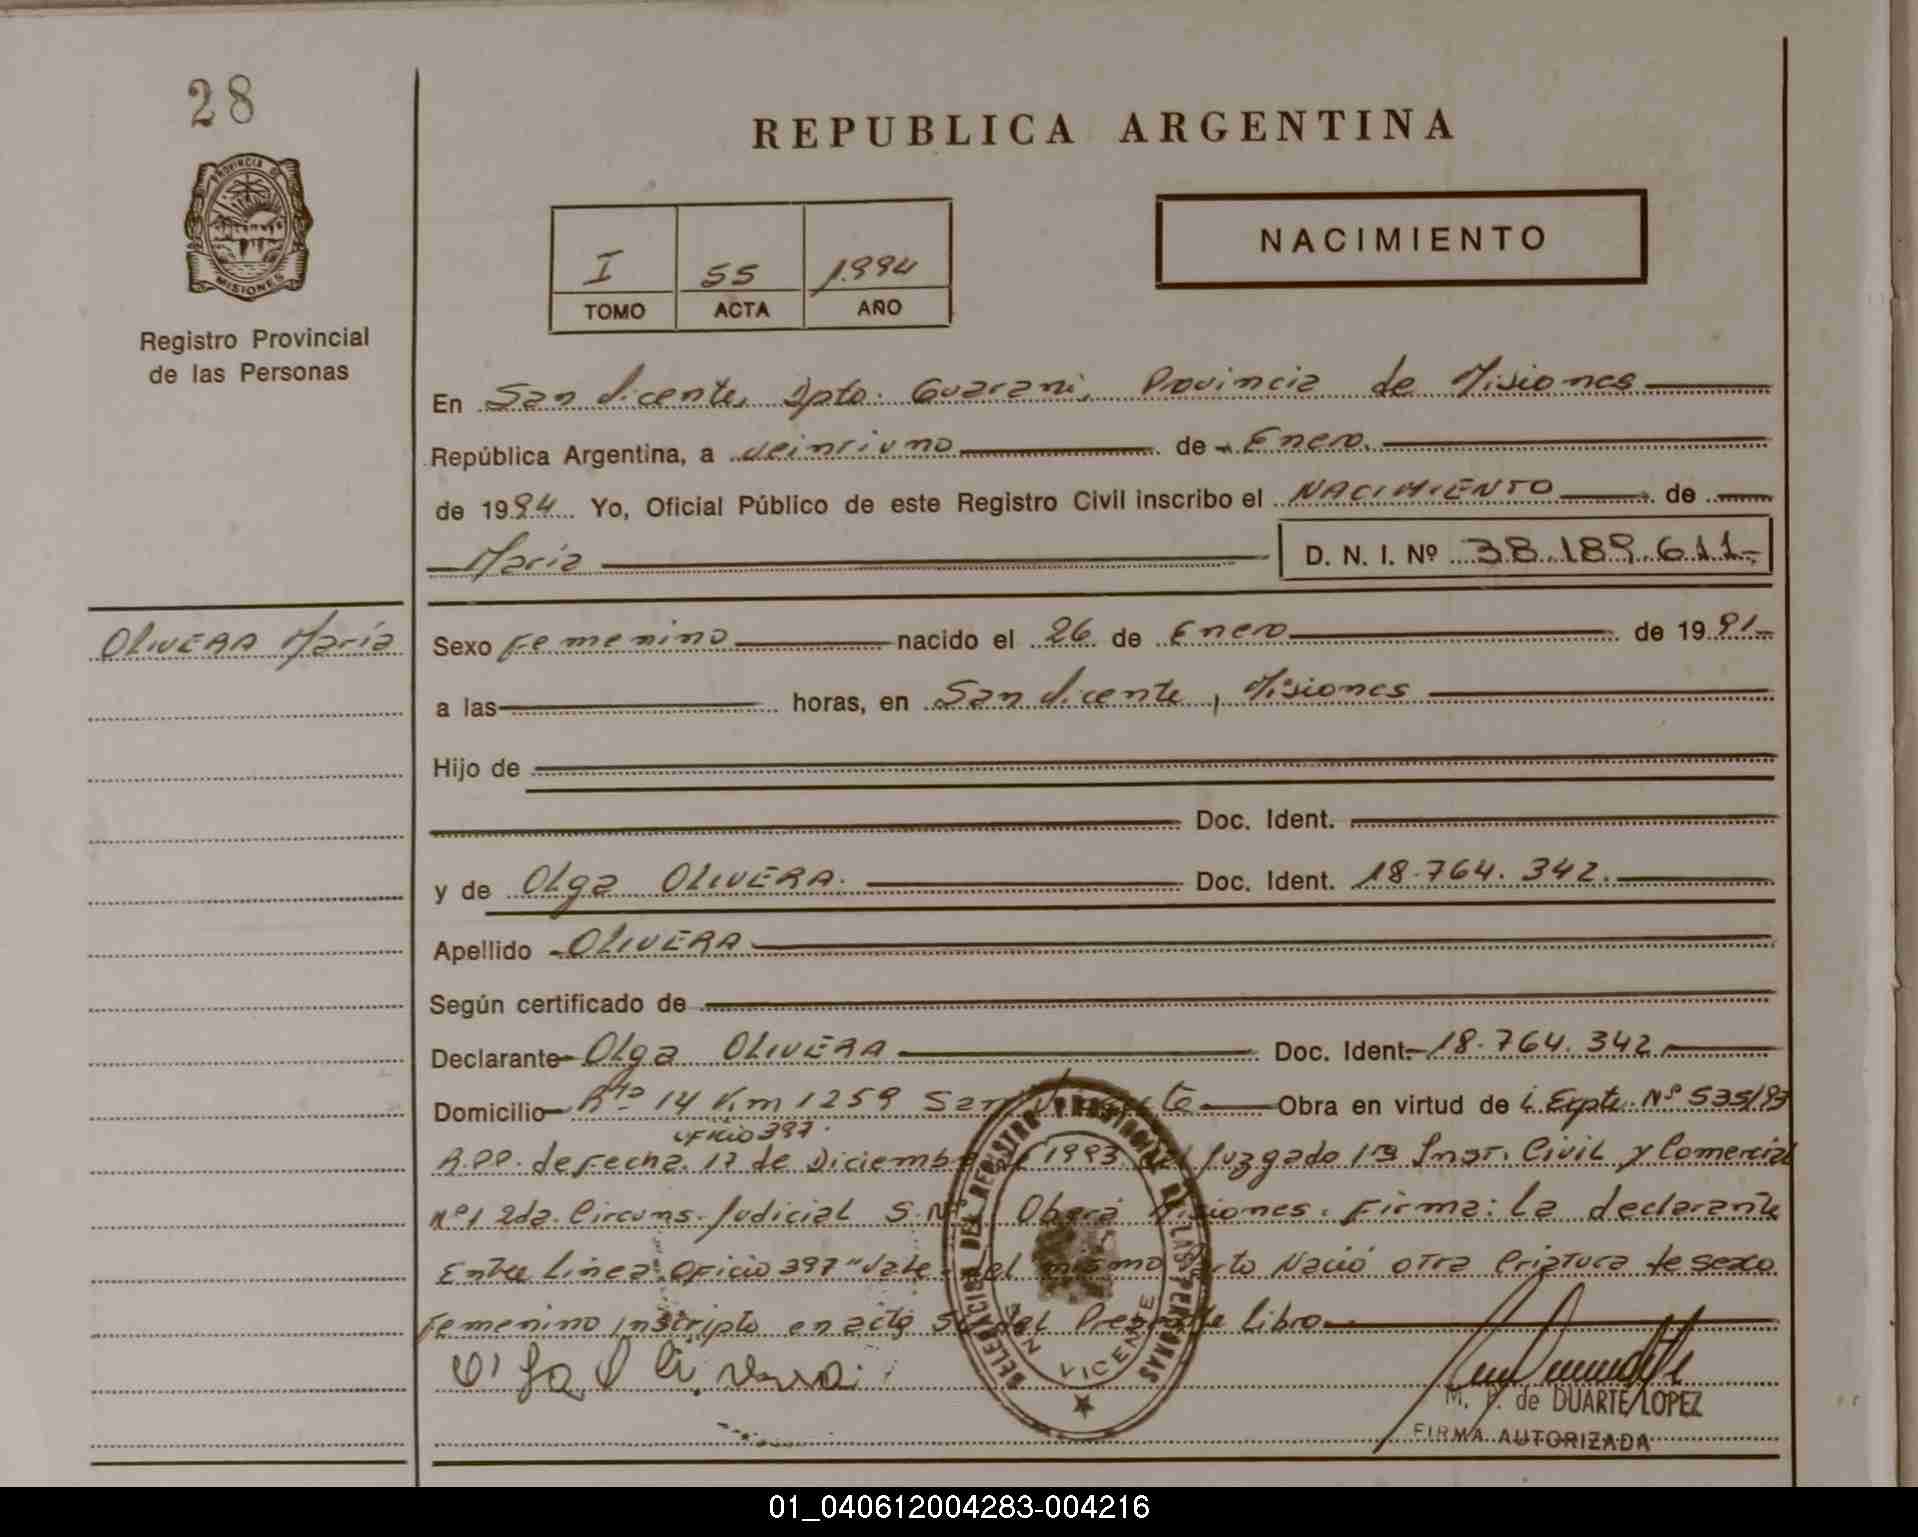 28
PROVINCIA DE
MISIONES
Registro Provincial
de las Personas
REPUBLICA ARGENTINA
NACIMIENTO
I 55 1.994
TOMO ACTA AÑO
En San Vicente, Dpto. Guarani, Provincia de Misiones
República Argentina, a veintiuno de Enero.
de 1994 Yo, Oficial Público de este Registro Civil inscribo el NACIMIENTO de
María D. N. I. Nº 38.189.611-
OLIVERA María
Sexo Femenino nacido el 26 de Enero de 1991
a las horas, en San Vicente, Misiones
Hijo de
Doc. Ident.
y de Olga OLIVERA. Doc. Ident. 18.764.342.
Apellido OLIVERA
Según certificado de
Declarante Olga OLIVERA Doc. Ident. 18.764.342
Domicilio Rta 14 Km 1259 San Vicente Obra en virtud de Expte. Nº 535/93
oficio 397
R.P.P. de fecha 17 de Diciembre 1993 del Juzgado 1ra Inst. Civil y Comercial
nº1 2da. Circuns. Judicial S. Nº Oberá Misiones. Firma: la declarante
Entre linea: oficio 397 "vale. del mismo parto Nació otra criatura de sexo
femenino inscripto en acta del Presente libro
Olga Olivera
DELEGACION DEL REGISTRO PROVINCIAL DE LAS PERSONAS
SAN VICENTE
M. P. de DUARTE LOPEZ
FIRMA AUTORIZADA
01_040612004283-004216